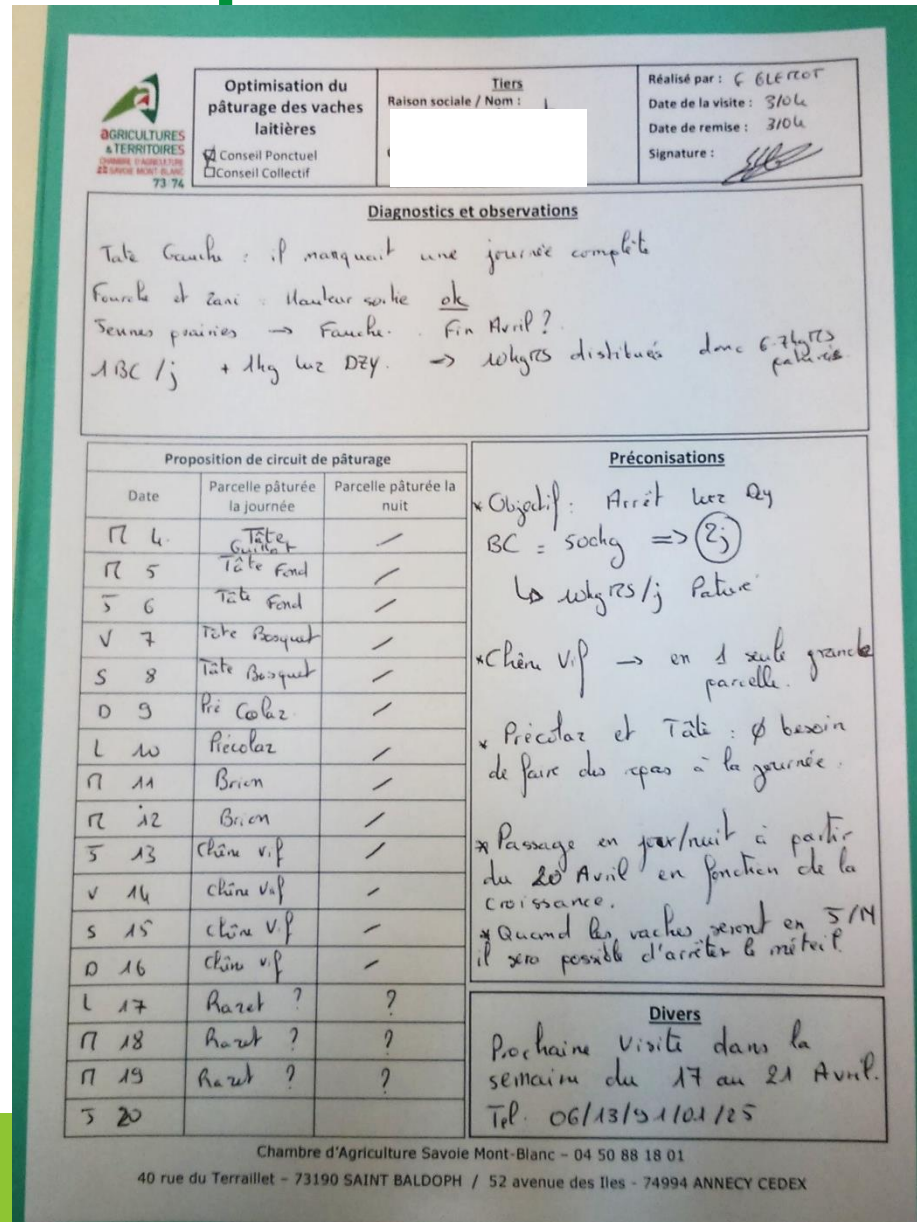 AGRICULTURES
& TERRITOIRES
CHAMBRE D'AGRICULTURE
SAVOIE MONT-BLANC
73 74
Optimisation du
pâturage des vaches
laitières
Conseil Ponctuel
Conseil Collectif
Tiers
Raison sociale / Nom :
Réalisé par : C
Date de la visite : 3/04
Date de remise : 3/04
Signature :
Diagnostics et observations
Tate Gauche : il manquait une journée complète
Fourche et Zani : Hauteur sortie ok
Jeunes prairies → Fauche. Fin Avril ?
1 BC /j + 1kg luz DZY. → 10kgMS distribués donc 6-7kgMS
paturés
Proposition de circuit de pâturage
Date
Parcelle pâturée
la journée
Parcelle pâturée la
nuit
M 4. Tâte /
M 5 Tâte Fond /
J 6 Tâte Fond /
V 7 Tâte Bosquet /
S 8 Tâte Bosquet /
D 9 Pré Colaz. /
L 10 Précolaz /
M 11 Brion /
M 12 Brion /
J 13 Chêne vif /
V 14 Chêne vif /
S 15 Chêne vif /
D 16 Chêne vif /
L 17 Razet ? ?
M 18 Razet ? ?
M 19 Razet ? ?
J 20
Préconisations
* Objectif : Arrêt luz Dzy
BC = 500kg => 2j
↳ 10kgMS/j Paturé
* Chêne Vif → en 1 seule grande
parcelle.
* Précolaz et Tâte : ø besoin
de faire des repas à la journée.
* Passage en jour/nuit à partir
du 20 Avril en fonction de la
croissance.
* Quand les vaches seront en J/N
il sera possible d'arrêter le méteil.
Divers
Prochaine Visite dans la
semaine du 17 au 21 Avril.
Tel. 06/13/91/01/25
Chambre d'Agriculture Savoie Mont-Blanc – 04 50 88 18 01
40 rue du Terraillet – 73190 SAINT BALDOPH / 52 avenue des Iles - 74994 ANNECY CEDEX